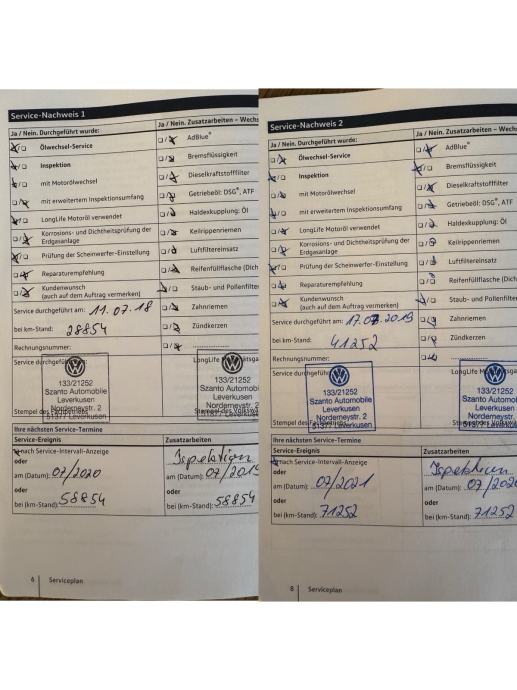 Service-Nachweis 1
Ja / Nein. Durchgeführt wurde:
Ölwechsel-Service
Inspektion
mit Motorölwechsel
mit erweitertem Inspektionsumfang
LongLife Motoröl verwendet
Korrosions- und Dichtheitsprüfung der
Erdgasanlage
Prüfung der Scheinwerfer-Einstellung
Reparaturempfehlung
Kundenwunsch
(auch auf dem Auftrag vermerken)
Service durchgeführt am: 11.07.18
bei km-Stand: 28854
Rechnungsnummer:
Service durchgeführt
133/21252
Szanto Automobile
Leverkusen
Norderneystr. 2
51377 Leverkusen
Ja / Nein. Zusatzarbeiten – Wechs
AdBlue®
Bremsflüssigkeit
Dieselkraftstofffilter
Getriebeöl: DSG®, ATF
Haldexkupplung: Öl
Keilrippenriemen
Luftfiltereinsatz
Reifenfüllflasche (Dich
Staub- und Pollenfilter
Zahnriemen
Zündkerzen
133/21252
Szanto Automobile
Leverkusen
Norderneystr. 2
51377 Leverkusen
Ihre nächsten Service-Termine
Service-Ereignis
nach Service-Intervall-Anzeige
oder
am (Datum): 07/2020
oder
bei (km-Stand): 58854
Zusatzarbeiten
Ispektion
am (Datum): 07/
oder
bei (km-Stand): 58854
6 Serviceplan
Service-Nachweis 2
Ja / Nein. Durchgeführt wurde:
Ölwechsel-Service
Inspektion
mit Motorölwechsel
mit erweitertem Inspektionsumfang
LongLife Motoröl verwendet
Korrosions- und Dichtheitsprüfung der
Erdgasanlage
Prüfung der Scheinwerfer-Einstellung
Reparaturempfehlung
Kundenwunsch
(auch auf dem Auftrag vermerken)
Service durchgeführt am: 17.07.2019
bei km-Stand: 41252
Rechnungsnummer:
Service durchgeführt
133/21252
Szanto Automobile
Leverkusen
Norderneystr. 2
51377 Leverkusen
Ja / Nein. Zusatzarbeiten – We
AdBlue®
Bremsflüssigkeit
Dieselkraftstofffilter
Getriebeöl: DSG®, ATF
Haldexkupplung: Öl
Keilrippenriemen
Luftfiltereinsatz
Reifenfüllflasche (Dich
Staub- und Pollenfilter
Zahnriemen
Zündkerzen
133/21252
Szanto Automobi
Leverkusen
Norderneystr. 2
51377 Leverkuse
Ihre nächsten Service-Termine
Service-Ereignis
nach Service-Intervall-Anzeige
oder
am (Datum): 07/2021
oder
bei (km-Stand): 71252
Zusatzarbeiten
am (Datum): 07/
oder
bei (km-Stand): 71252
8 Serviceplan